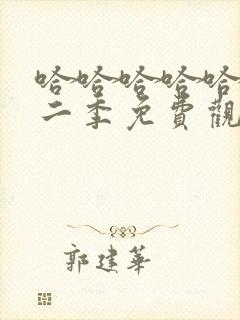 哈哈哈哈哈
二季免費觀
郭建華